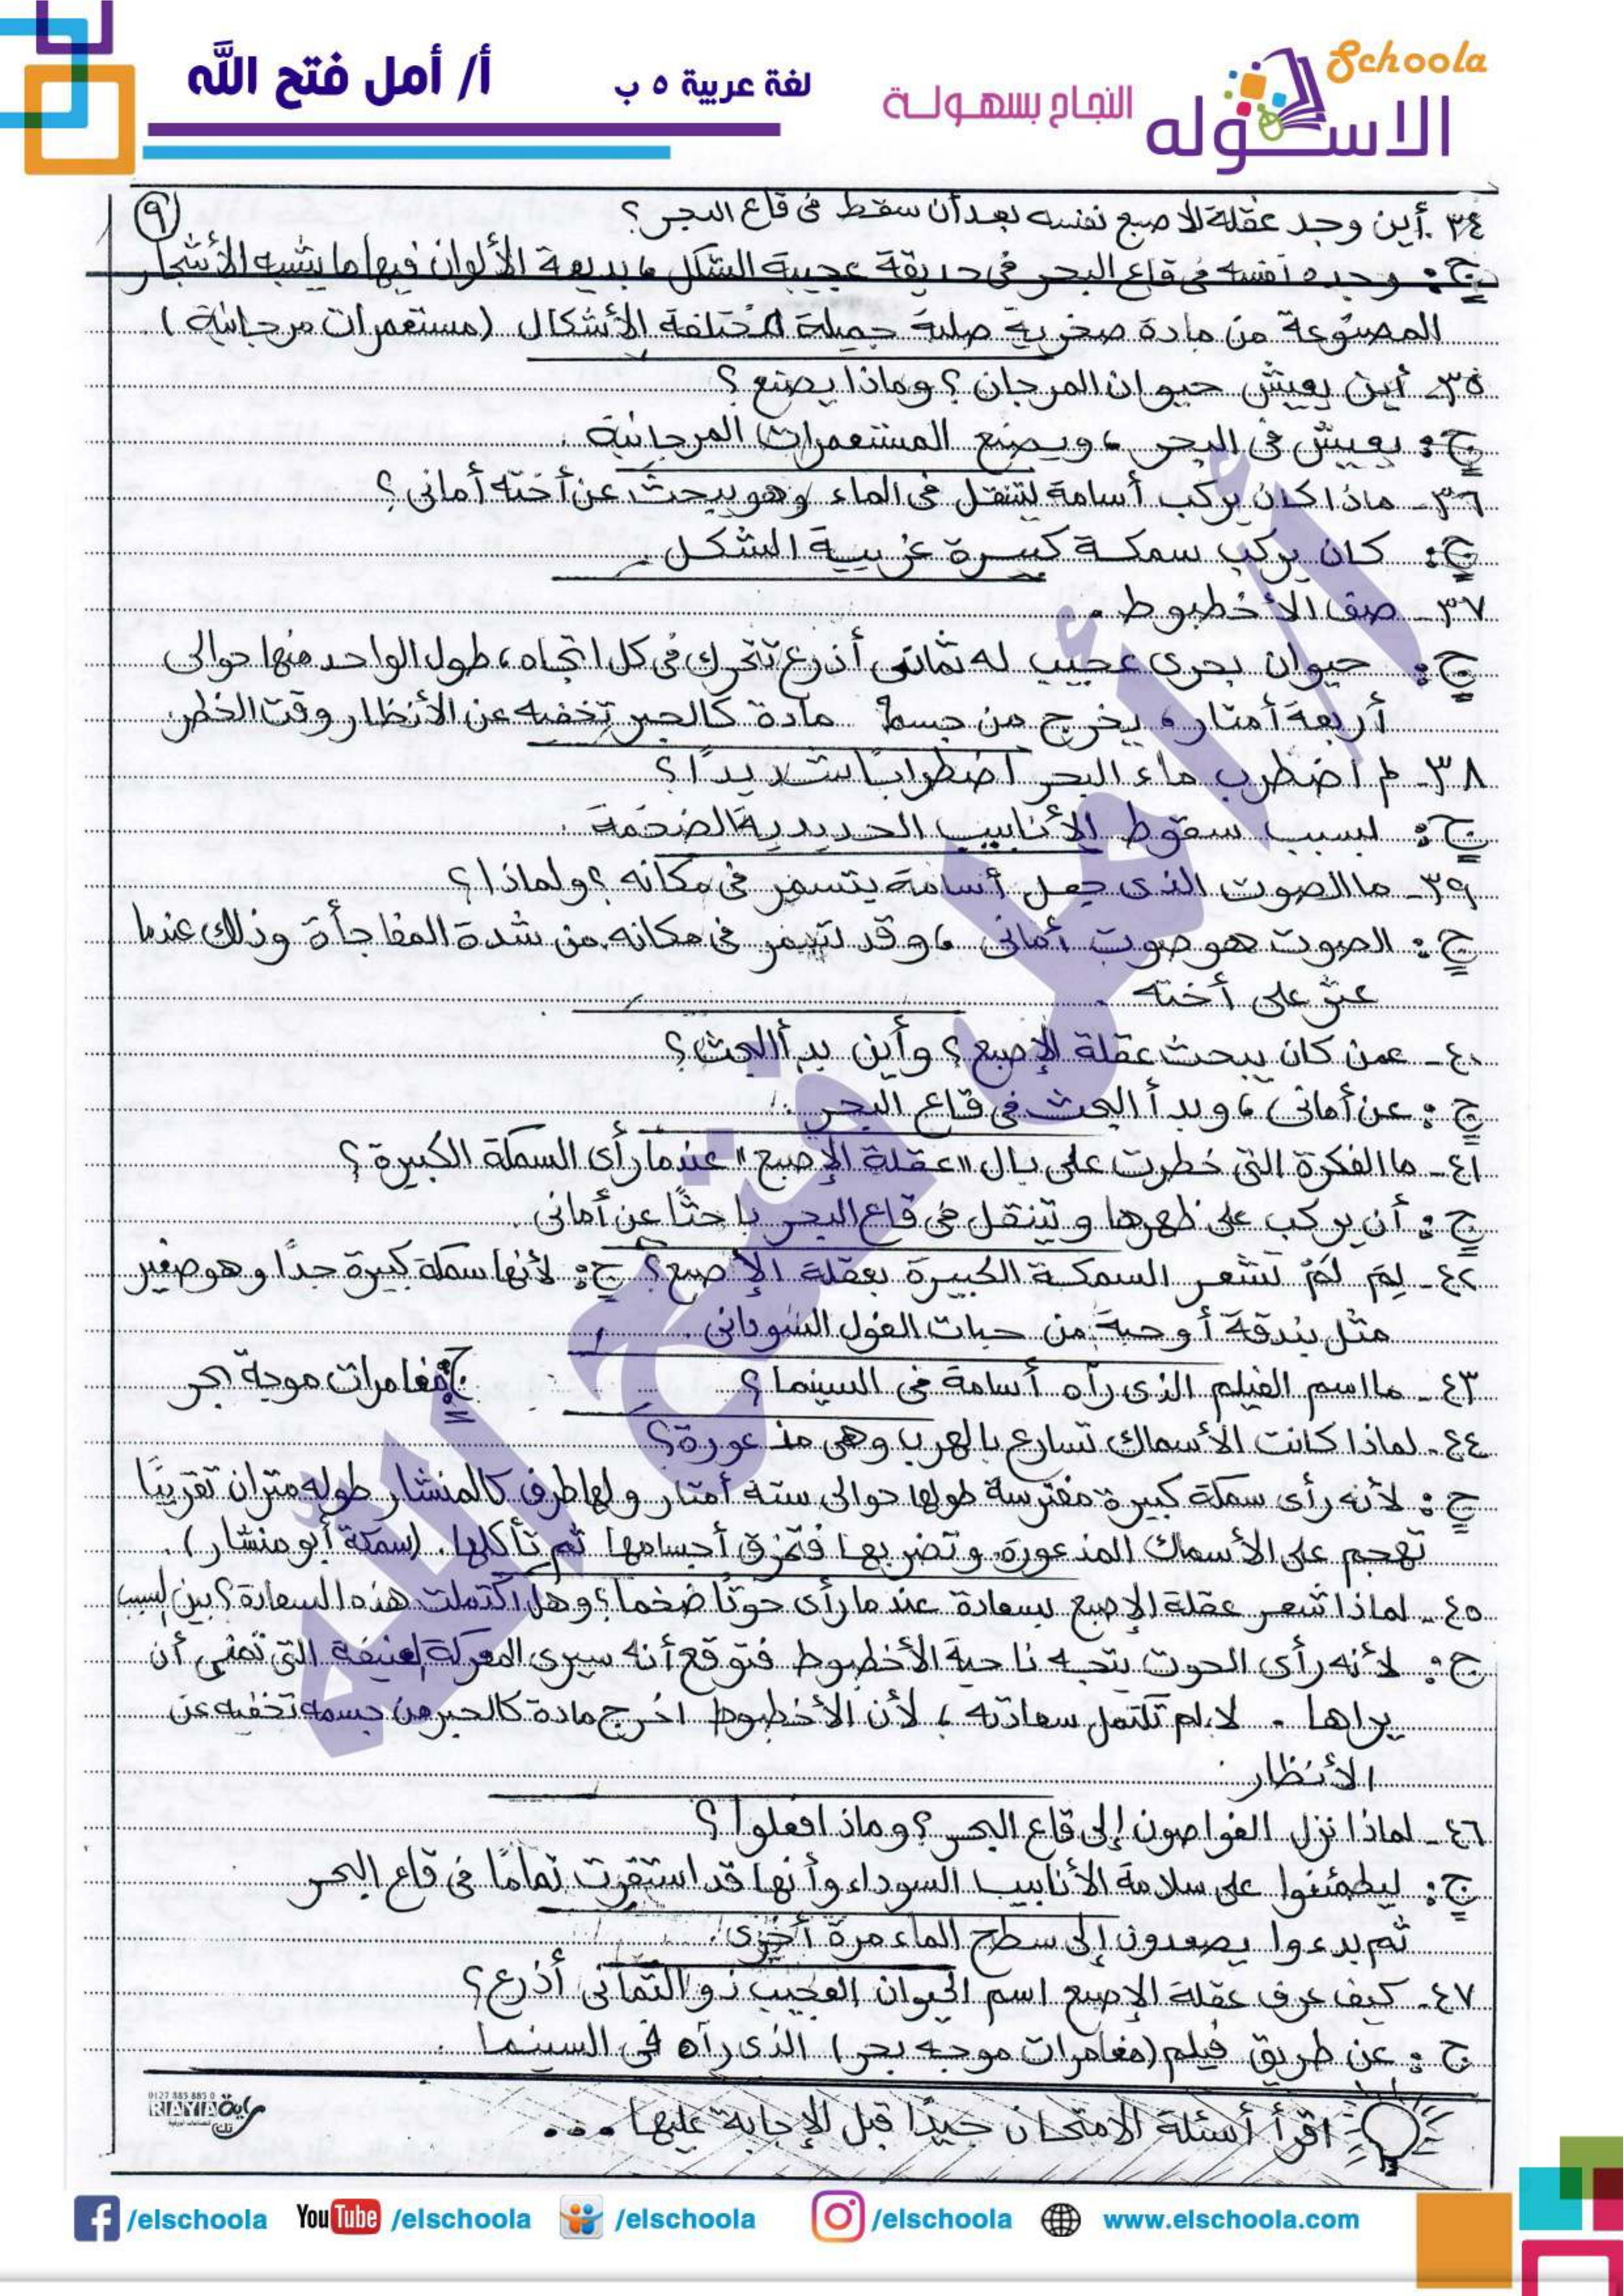 Schoola
الاسكوله
النجاح بسهولة
لغة عربية ٥ ب
أ/ أمل فتح الله
٩
٣٤. أين وجد عقلة الاصبع نفسه بعد أن سقط فى قاع البحر؟
ج: وجد نفسه فى قاع البحر فى حديقة عجيبة الشكل، بديعة الألوان فيها ما يشبه الأشجار
المصنوعة من مادة صخرية صلبة جميلة مختلفة الأشكال (مستعمرات مرجانية).
٣٥- أين يعيش حيوان المرجان؟ وماذا يصنع؟
ج: يعيش فى البحر، ويصنع المستعمرات المرجانية.
٣٦- ماذا كان يركب أسامة لتنقل فى الماء وهو يبحث عن أخته أمانى؟
ج: كان يركب سمكة كبيرة غريبة الشكل.
٣٧- صف الأخطبوط.
ج: حيوان بحرى عجيب له ثمانى أذرع تتحرك فى كل اتجاه، طول الواحد منها حوالى
أربعة أمتار، يخرج من جسمه مادة كالحبر تخفيه عن الأنظار وقت الخطر.
٣٨- لم اضطرب ماء البحر اضطرابًا شديدًا؟
ج: بسبب سقوط الأنابيب الحديدية الضخمة.
٣٩- ما الصوت الذى جعل أسامة يتسمر فى مكانه؟ ولماذا؟
ج: الصوت هو صوت أمانى، وقد تسمر فى مكانه من شدة المفاجأة وذلك عندما
عثر على أخته.
٤٠- عمن كان يبحث عقلة الإصبع؟ وأين بدأ البحث؟
ج: عن أمانى، وبدأ البحث فى قاع البحر.
٤١- ما الفكرة التى خطرت على بال "عقلة الإصبع" عندما رأى السمكة الكبيرة؟
ج: أن يركب على ظهرها ويتنقل فى قاع البحر باحثًا عن أمانى.
٤٢- لِمَ لَمْ تشعر السمكة الكبيرة بعقلة الإصبع؟ ج: لأنها سمكة كبيرة جدًا وهو صغير
مثل بندقة أو حبة من حبات الفول السودانى.
٤٣- ما اسم الفيلم الذى رآه أسامة فى السينما؟ ج: مغامرات موجة بحر
٤٤- لماذا كانت الأسماك تسارع بالهرب وهى مذعورة؟
ج: لأنه رأى سمكة كبيرة مفترسة طولها حوالى ستة أمتار ولها طرف كالمنشار طوله متران تقريبًا
تهجم على الأسماك المذعورة وتضربها فتمزق أجسامها ثم تأكلها. (سمكة أبو منشار).
٤٥- لماذا شعر عقلة الإصبع بسعادة عندما رأى حوتًا ضخما؟ وهل اكتملت هذه السعادة؟ بين السبب
ج: لأنه رأى الحوت يتجه ناحية الأخطبوط فتوقع أنه سيرى المعركة العنيفة التى تمنى أن
يراها. لا، لم تكتمل سعادته، لأن الأخطبوط اخرج مادة كالحبر من جسمه تخفيه عن
الأنظار.
٤٦- لماذا نزل الغواصون إلى قاع البحر؟ وماذا فعلوا؟
ج: ليطمئنوا على سلامة الأنابيب السوداء وأنها قد استقرت تمامًا فى قاع البحر
ثم بدءوا يصعدون إلى سطح الماء مرة أخرى.
٤٧- كيف عرف عقلة الإصبع اسم الحيوان العجيب ذو الثمانى أذرع؟
ج: عن طريق فيلم (مغامرات موجه بحر) الذى رآه فى السينما.
اقرأ أسئلة الامتحان جيدًا قبل الإجابة عليها...
0127 885 885 0
RIAYIA
/elschoola YouTube /elschoola /elschoola /elschoola www.elschoola.com
أ/ أمل فتح الله